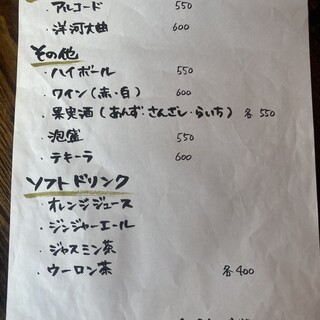 ・アルコード 550
・洋河大曲 600
その他
・ハイボール 550
・ワイン(赤・白) 600
・果実酒(あんず・さんざし・らいち) 各550
・泡盛 550
・テキーラ 600
ソフトドリンク
・オレンジジュース
・ジンジャーエール
・ジャスミン茶
・ウーロン茶 各400